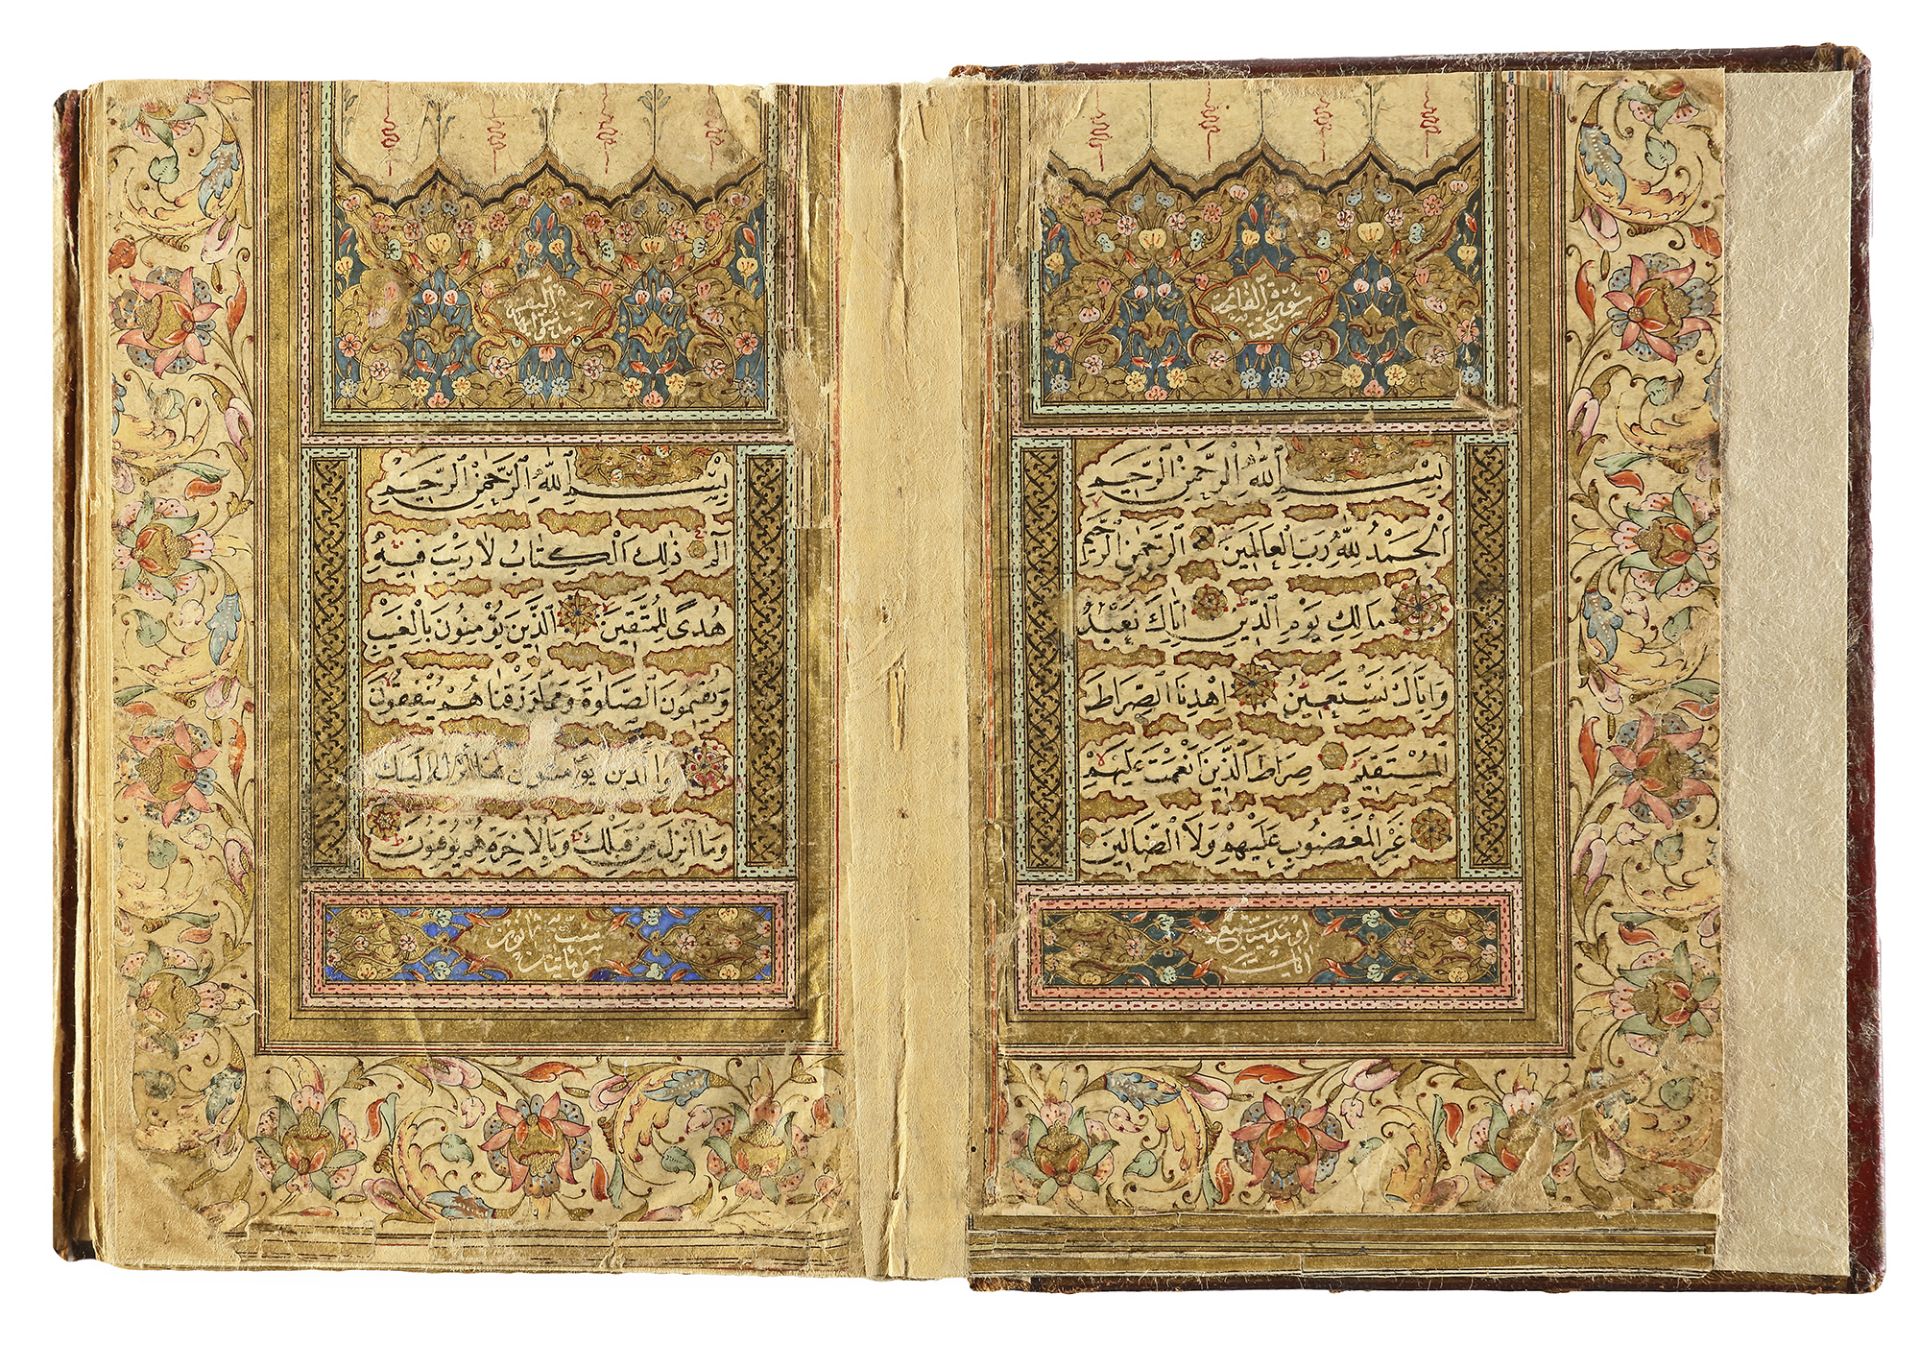 سورة الفاتحة
مكية
بِسْمِ اللهِ الرَّحْمٰنِ الرَّحِيمِ
اَلْحَمْدُ لِلّٰهِ رَبِّ الْعَالَمِينَ الرَّحْمٰنِ الرَّحِيمِ
مَالِكِ يَوْمِ الدِّينِ اِيَّاكَ نَعْبُدُ
وَاِيَّاكَ نَسْتَعِينُ اِهْدِنَا الصِّرَاطَ
الْمُسْتَقِيمَ صِرَاطَ الَّذِينَ اَنْعَمْتَ عَلَيْهِمْ
غَيْرِ الْمَغْضُوبِ عَلَيْهِمْ وَلَا الضَّالِّينَ
سبع
آيات
سورة البقرة
بِسْمِ اللهِ الرَّحْمٰنِ الرَّحِيمِ
الٓمٓ ذٰلِكَ الْكِتَابُ لَا رَيْبَ فِيهِ
هُدًى لِلْمُتَّقِينَ الَّذِينَ يُؤْمِنُونَ بِالْغَيْبِ
وَيُقِيمُونَ الصَّلٰوةَ وَمِمَّا رَزَقْنَاهُمْ يُنْفِقُونَ
وَالَّذِينَ يُؤْمِنُونَ بِمَا اُنْزِلَ اِلَيْكَ
وَمَا اُنْزِلَ مِنْ قَبْلِكَ وَبِالْاٰخِرَةِ هُمْ يُوقِنُونَ